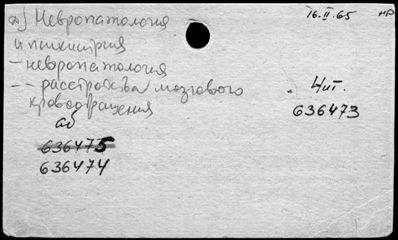 а) Невропатология
и психиатрия
— невропатология
— расстройства мозгового
кровообращения
аб
636475
636474
16.II.65
нр
Чит.
636473